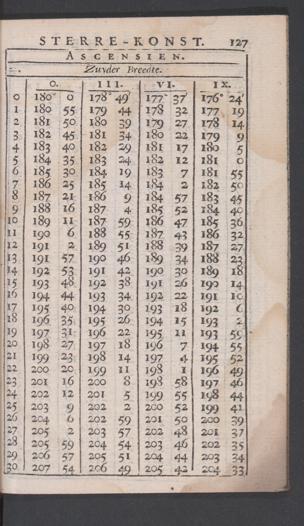 STERRE-KONST. 127
ASCENSIEN.
Zuyder Breedte.
0. III. VI. IX.
0 180° 0 178° 49' 177° 37' 176° 24'
1 180 55 179 44 178 32 177 19
2 181 50 180 39 179 27 178 14
3 182 45 181 34 180 22 179 9
4 183 40 182 29 181 17 180 5
5 184 35 183 24 182 12 181 0
6 185 30 184 19 183 7 181 55
7 186 25 185 14 184 2 182 50
8 187 21 186 9 184 57 183 45
9 188 16 187 4 185 52 184 40
10 189 11 187 59 186 47 185 36
11 190 6 188 55 187 43 186 32
12 191 2 189 51 188 39 187 27
13 191 57 190 46 189 34 188 23
14 192 53 191 42 190 30 189 18
15 193 48 192 38 191 26 190 14
16 194 44 193 34 192 22 191 10
17 195 40 194 30 193 18 192 6
18 196 35 195 26 194 15 193 2
19 197 31 196 22 195 11 193 59
20 198 27 197 18 196 7 194 55
21 199 23 198 14 197 4 195 52
22 200 20 199 11 198 1 196 49
23 201 16 200 8 198 58 197 46
24 202 12 201 5 199 55 198 44
25 203 9 202 2 200 52 199 41
26 204 6 202 59 201 50 200 39
27 205 2 203 57 202 48 201 37
28 205 59 204 54 203 46 202 35
29 206 57 205 51 204 44 203 34
30 207 54 206 49 205 42 204 33